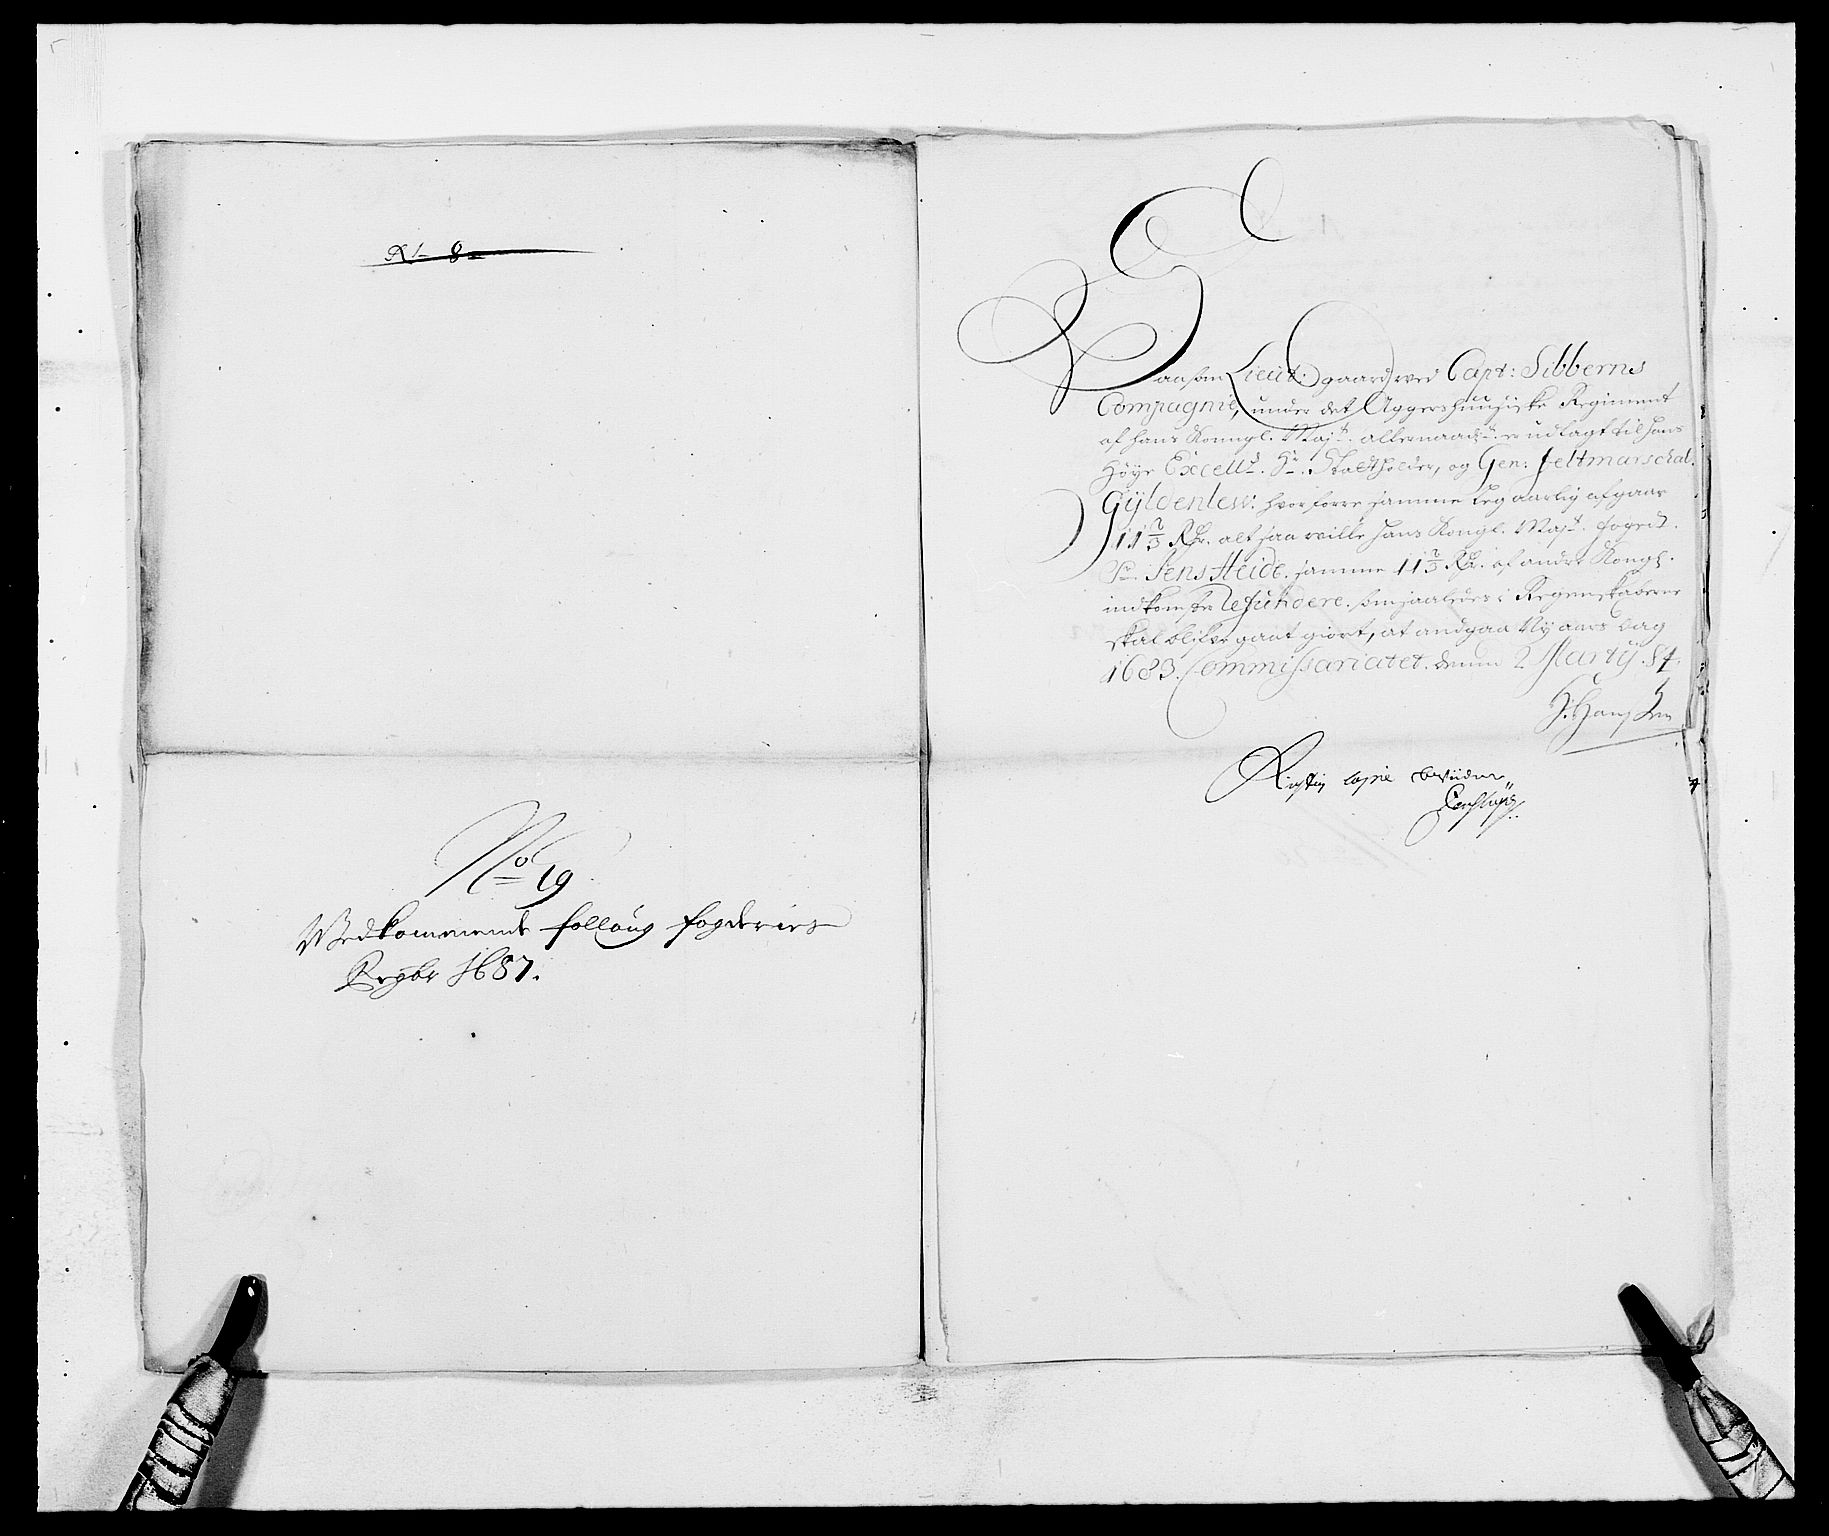 No 19
Vedkommende folloug fogderies
Regbr 1687.
Saasom Lieut: gaard ved Capt: Sibberns
Compagnie, under det Aggershuusiske Regiment
af hans Konngl. Maj:t allernaadst er udlagt til hans
Høye Excell: Hr. Stadtholder, og Gen: feltmarschal.
Gyldenlew: hvorforre samme leg aarlig afgaar
11 2/3 Rdr. alt saa wille hans Kongl. Maj:t foged.
Sr. Jens Heide. samme 11 2/3 Rdr. af andre Kongl.
indkomster Refundere. som saaledes i Regenskaberne
skal blifve gaat giort, at andgaa Ny aars dag
1683. Commissariatet. denn 2 Martij 84.
H: Hansen
Rigtig copie